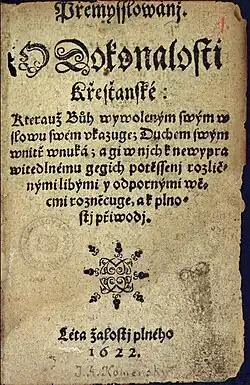 Přemysslowanj.
O Dokonalosti
Křesťanské:
Kterauž Bůh wywoleným swým w
slowu swém vkazuge; Duchem swým
wnitř wnuká; a gi w nich k newypra
witedlnému gegich potěssenj rozlič-
nými libými y odpornými wě-
cmi rozněcuge, a k plno-
stj přiwodj.
Léta žalostj plného
1622.
J. A. Komenský